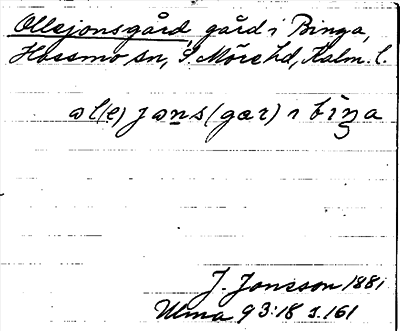 Ollejonsgård, gård i Binga,
Hossmo sn, S. Möre hd, Kalm. l.
əl(e)jəns(gær) ı bı̀ŋa
J. Jonsson 1881
Ulma 93:18 s. 161